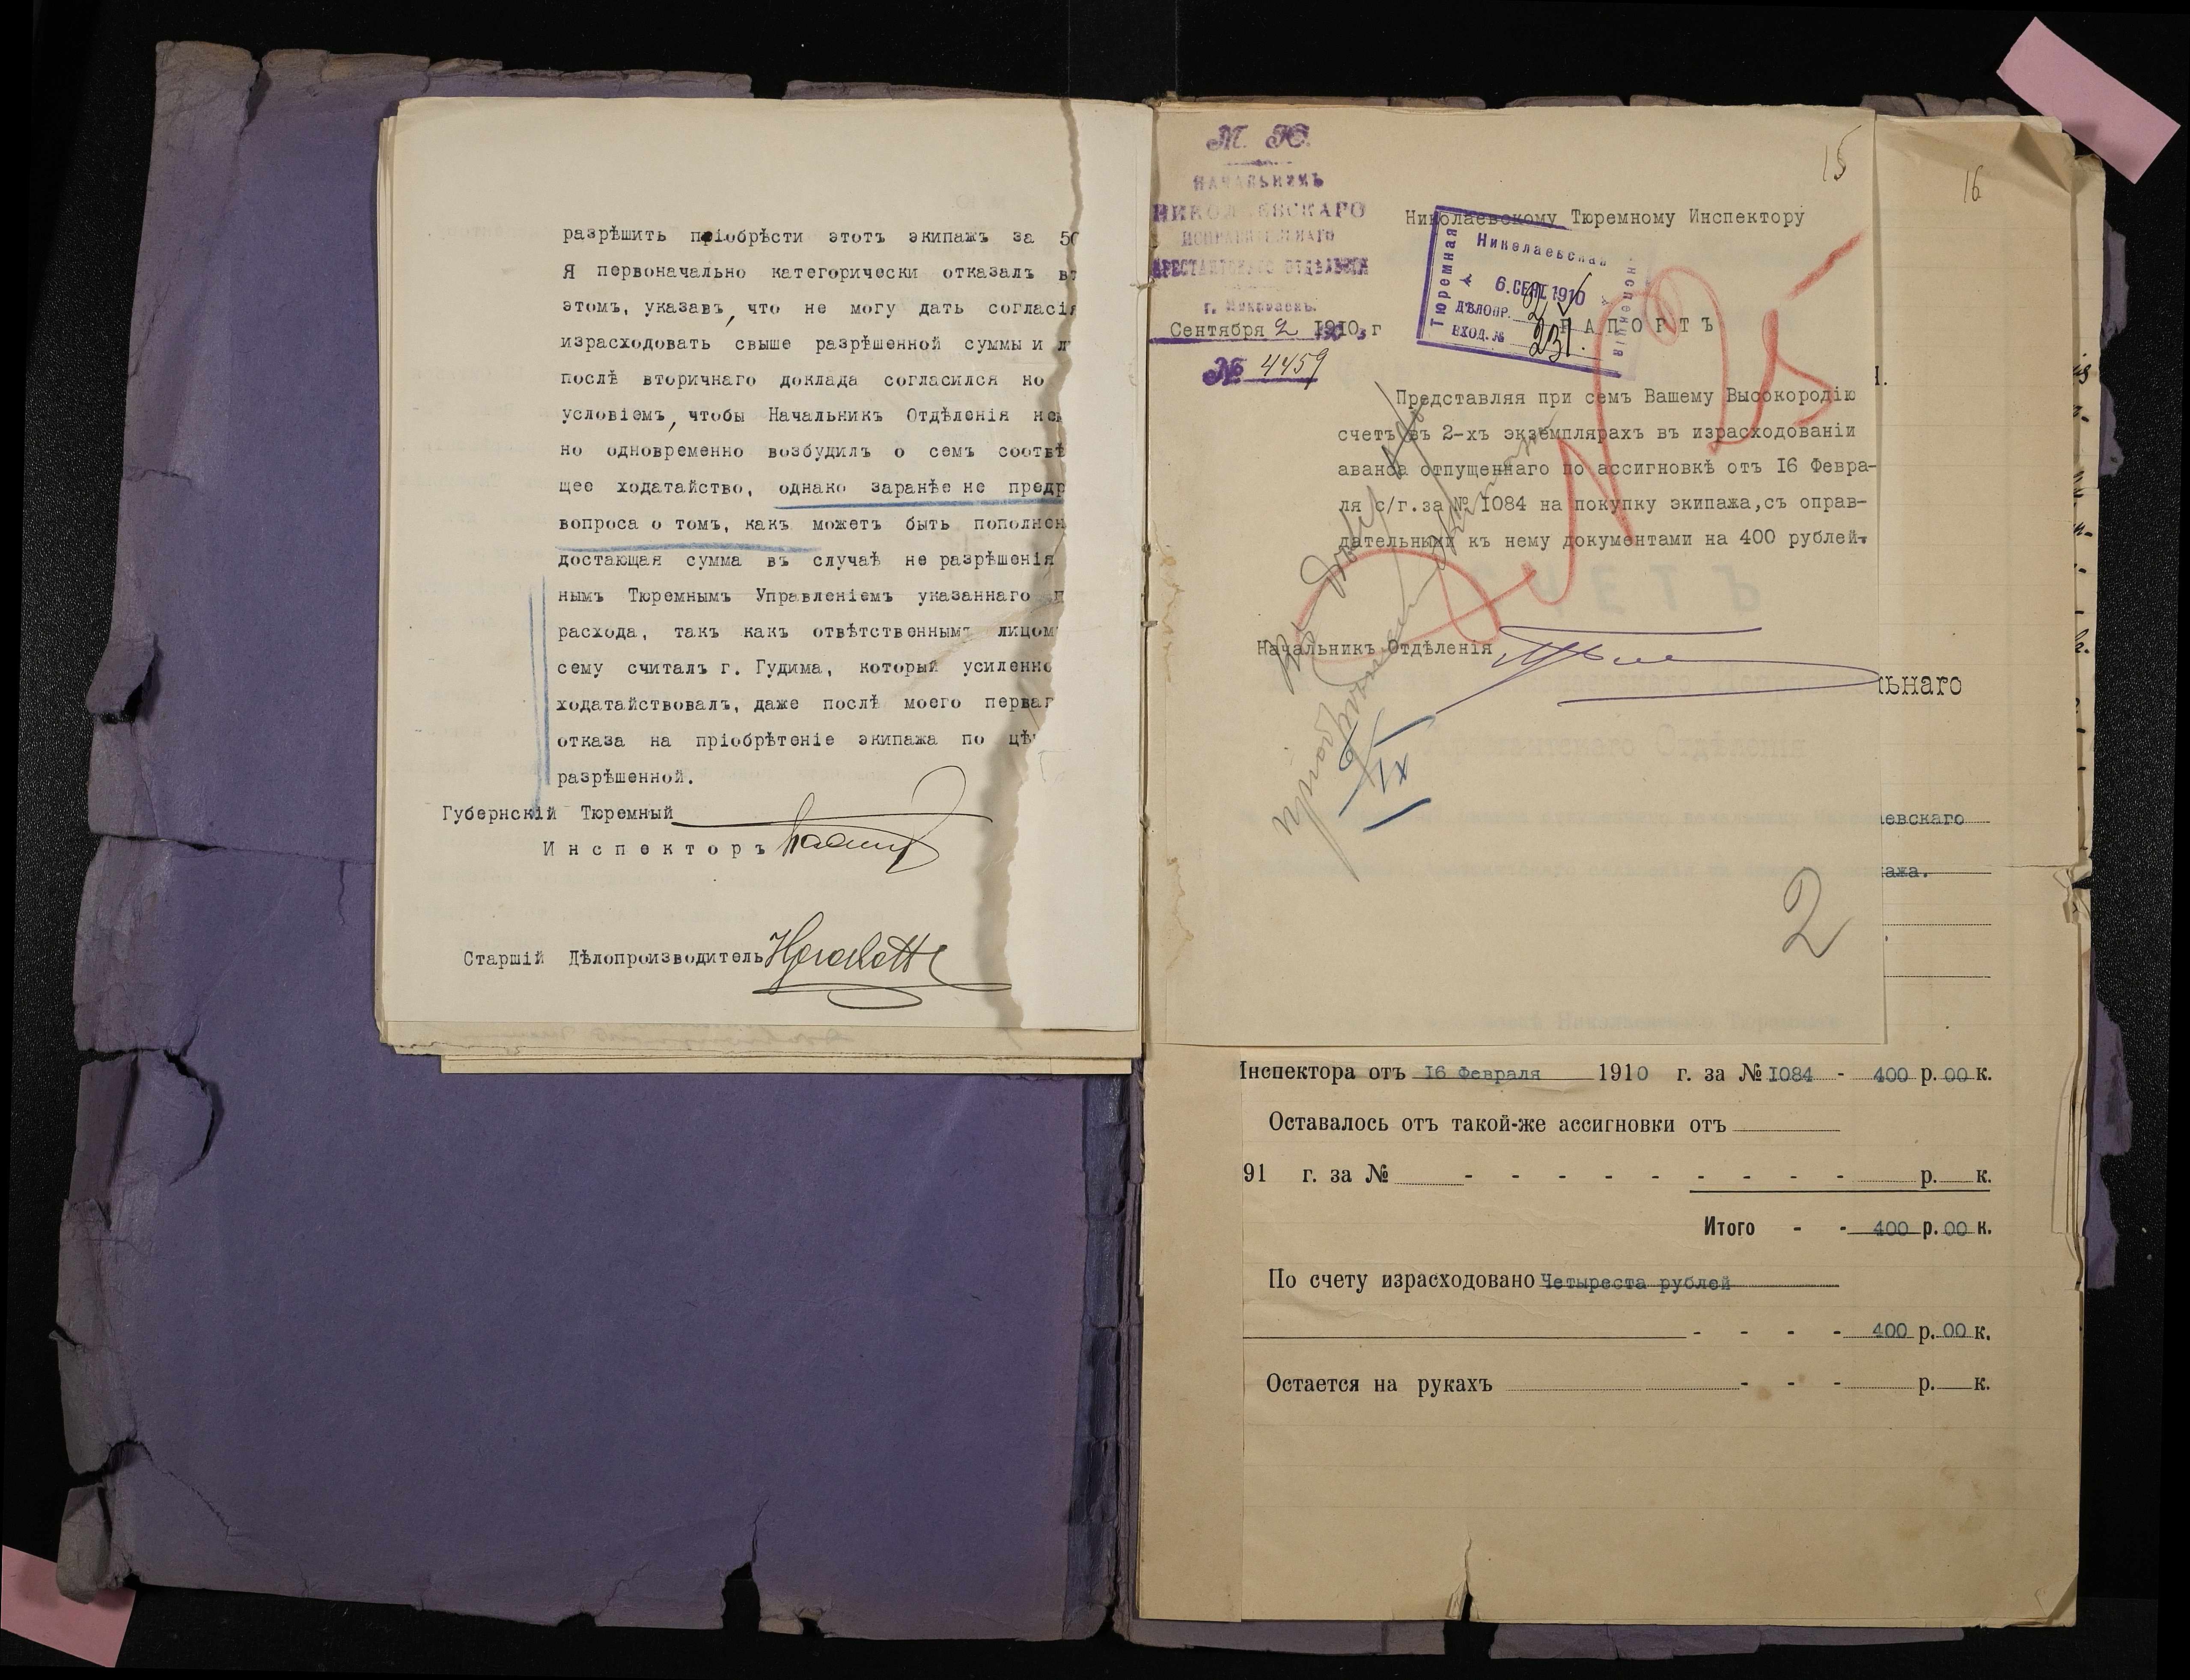 разрѣшить пріобрѣсти этотъ экипажъ за 50
Я первоначально категорически отказалъ въ
этомъ, указавъ, что не могу дать согласія
израсходовать свыше разрѣшенной суммы и л
послѣ вторичнаго доклада согласился но
условіемъ, чтобы Начальникъ Отдѣленія нем
но одновременно возбудилъ о семъ соотвѣ
щее ходатайство, однако заранѣе не предр
вопроса о томъ, какъ можетъ быть пополнен
достающая сумма въ случаѣ не разрѣшенія
нымъ Тюремнымъ Управленіемъ указаннаго п
расхода, такъ какъ отвѣтственнымъ лицомъ
сему считалъ г. Гудима, который усиленно
ходатайствовалъ, даже послѣ моего перваг
отказа на пріобрѣтеніе экипажа по цѣн
разрѣшенной.
Губернскій Тюремный
Инспекторъ
Старшій Дѣлопроизводитель
М. Ю.
НАЧАЛЬНИКЪ
НИКОЛАЕВСКАГО
ИСПРАВИТЕЛЬНАГО
АРЕСТАНТСКАГО ОТДѢЛЕНІЯ
Сентября 2 1910 г
№ 4459
15
Николаевскому Тюремному Инспектору
Николаевская
Тюремная
Инспекція
6. СЕНТ. 1910
ДѢЛОПР.
ВХОД. № 231.
РАПОРТЪ
Представляя при семъ Вашему Высокородію
счетъ въ 2-хъ экземплярахъ въ израсходованіи
аванса отпущеннаго по ассигновкѣ отъ 16 Февра-
ля с/г. за № 1084 на покупку экипажа, съ оправ-
дательными къ нему документами на 400 рублей.
Начальникъ Отдѣленія
6/IX
2
16
СЧЕТЪ
льнаго
евскаго
ажа.
Инспектора отъ 16 Февраля 1910 г. за № 1084 - 400 р. 00 к.
Оставалось отъ такой-же ассигновки отъ
91 г. за № - - - - - - - - - р. к.
Итого - - 400 р. 00 к.
По счету израсходовано Четыреста рублей
- - - - 400 р. 00 к.
Остается на рукахъ - - - р. к.